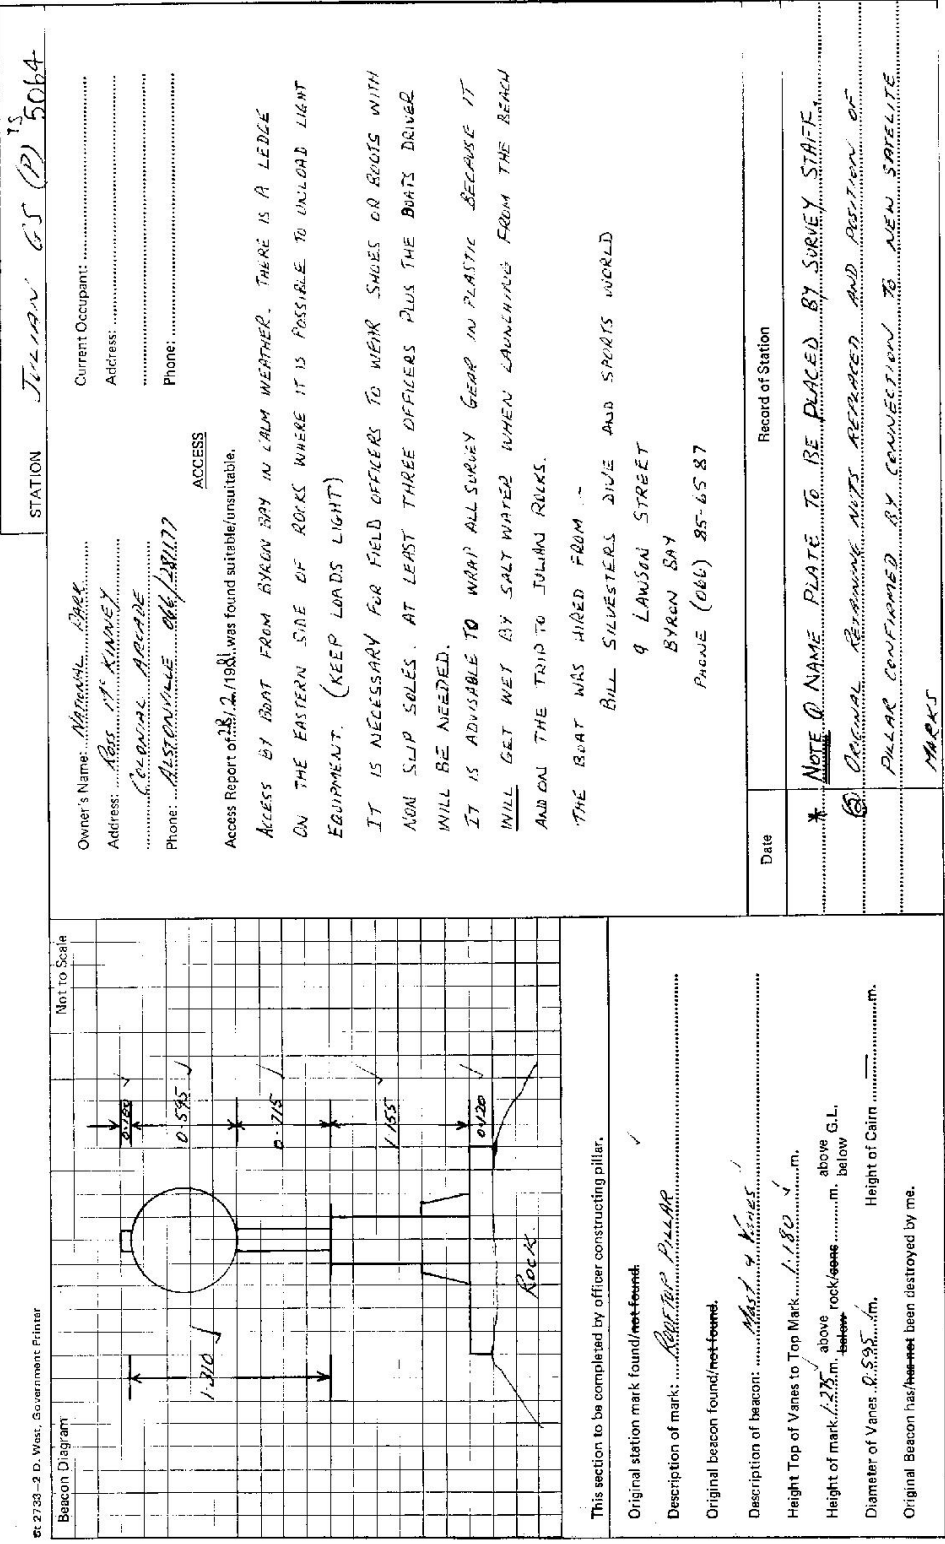 St 2733–2 D. West, Government Printer
Beacon Diagram
Not to Scale
0·120
0·595
0·715
1·155
0·120
1·310
ROCK
This section to be completed by officer constructing pillar.
Original station mark found/not found.
Description of mark: ROOFTOP PILLAR
Original beacon found/not found.
Description of beacon: Mast & Vanes
Height Top of Vanes to Top Mark 1·180 m.
Height of mark 1·275 m. above below rock/conc m. above below G.L.
Diameter of Vanes 0·595 m. Height of Cairn — m.
Original Beacon has/has not been destroyed by me.
STATION JULIAN GS (P) TS 5064
Owner's Name: NATIONAL PARK
Address: ROSS McKINNEY
COLONIAL ARCADE
Phone: ALSTONVILLE 066/281177
Current Occupant:
Address:
Phone:
ACCESS
Access Report of 28/2/1981 was found suitable/unsuitable.
ACCESS BY BOAT FROM BYRON BAY IN CALM WEATHER. THERE IS A LEDGE
ON THE EASTERN SIDE OF ROCKS WHERE IT IS POSSIBLE TO UNLOAD LIGHT
EQUIPMENT. (KEEP LOADS LIGHT)
IT IS NECESSARY FOR FIELD OFFICERS TO WEAR SHOES OR BOOTS WITH
NON SLIP SOLES. AT LEAST THREE OFFICERS PLUS THE BOATS DRIVER
WILL BE NEEDED.
IT IS ADVISABLE TO WRAP ALL SURVEY GEAR IN PLASTIC BECAUSE IT
WILL GET WET BY SALT WATER WHEN LAUNCHING FROM THE BEACH
AND ON THE TRIP TO JULIAN ROCKS.
THE BOAT WAS HIRED FROM :-
BILL SILVESTERS DIVE AND SPORTS WORLD
9 LAWSON STREET
BYRON BAY
PHONE (066) 85-6587
Date
Record of Station
* NOTE NAME PLATE TO BE PLACED BY SURVEY STAFF.
ORIGINAL RETAINING NUTS REPLACED AND POSITION OF
PILLAR CONFIRMED BY CONNECTION TO NEW SATELITE
MARKS